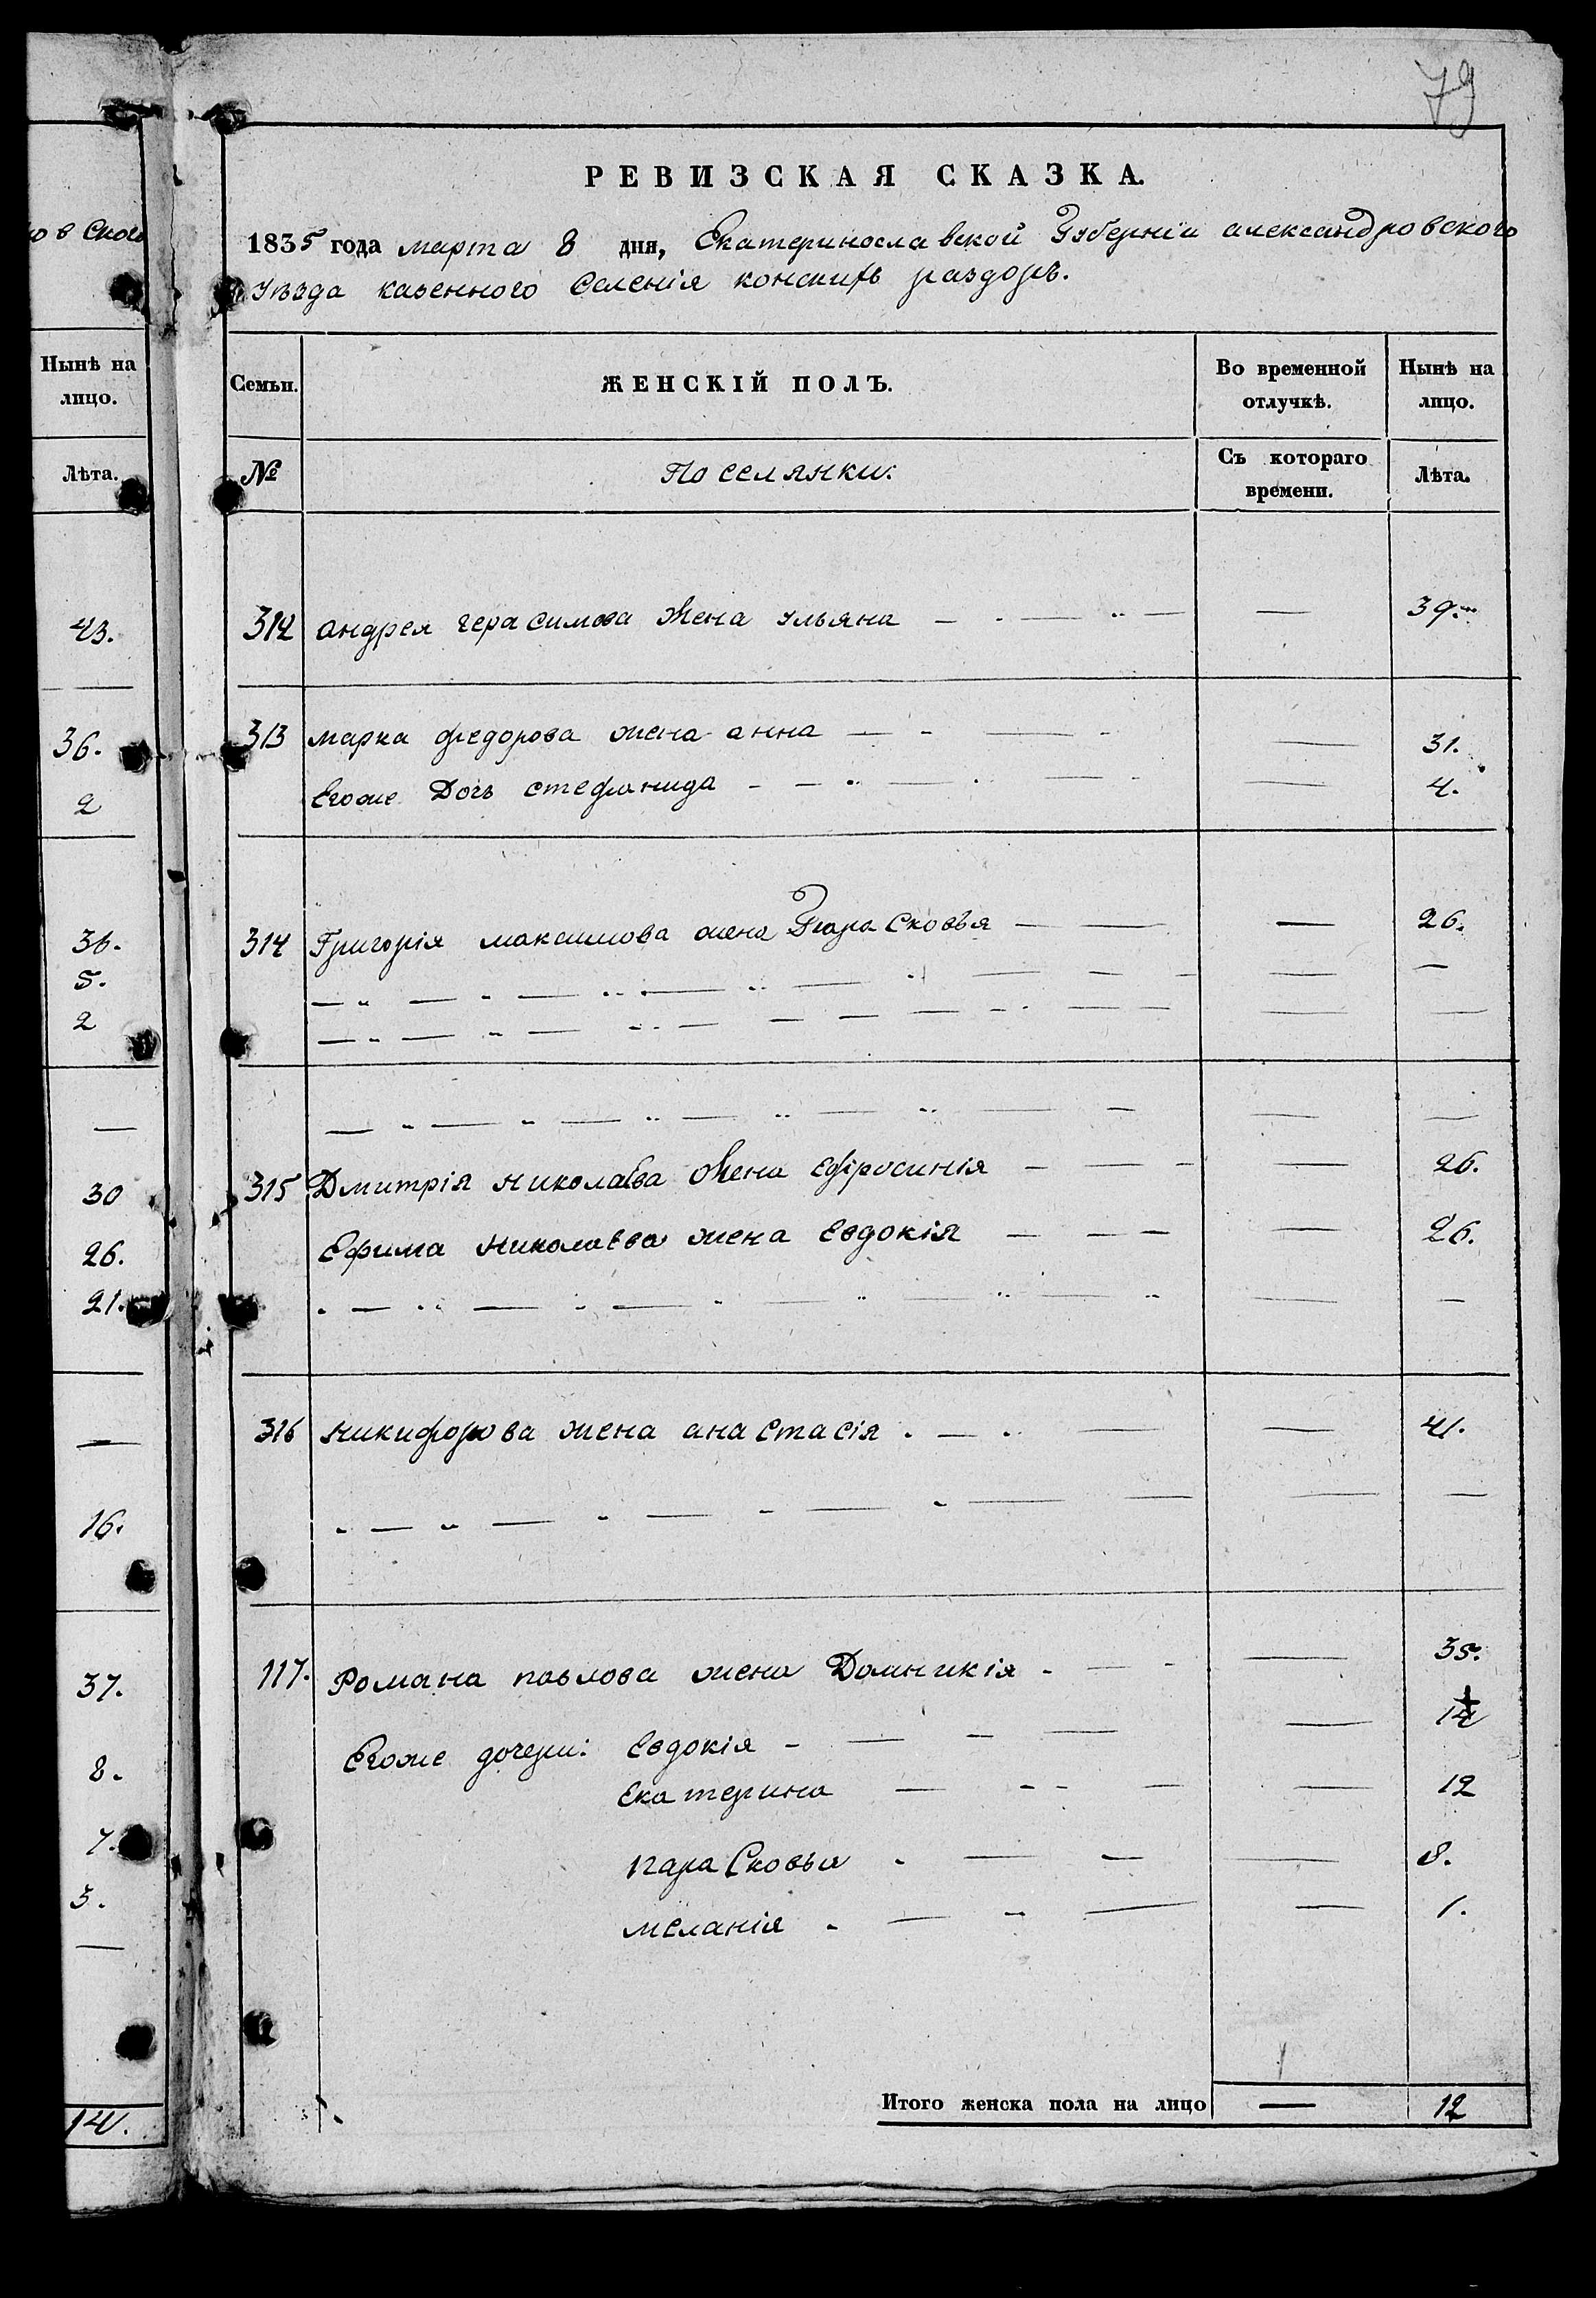 79
РЕВИЗСКАЯ СКАЗКА.
1835 года марта 8 дня, Екатеринославской Губерніи александровского
Уѣзда казенного Селенія конскихъ раздоръ.
Семьи. ЖЕНСКІЙ ПОЛЪ. Во временной отлучкѣ. Нынѣ на лицо.
№ Поселянки: Съ котораго времени. Лѣта.
312 андрея герасимова жена ульяна — — 39.
313 марка федорова жена анна — — 31.
Егоже Дочь стефанида — — 4.
314 Григорія максимова жена Парасковья — — 26.
315 Дмитрія николаева жена Ефросинія — — 26.
Ефима николаева жена Евдокія — — 26.
316 никифорова жена анастасія — — 41.
117. Романа павлова жена Домникія — — 35.
Егоже дочери: Евдокія — — 14
Екатерина — — 12
параСковья — — 8.
меланія — — 1.
Итого женска пола на лицо — 12
Нынѣ на
лицо.
Лѣта.
43.
36.
2
36.
5.
2
—
30
26.
21.
—
16.
37.
8.
7.
3.
—
14.